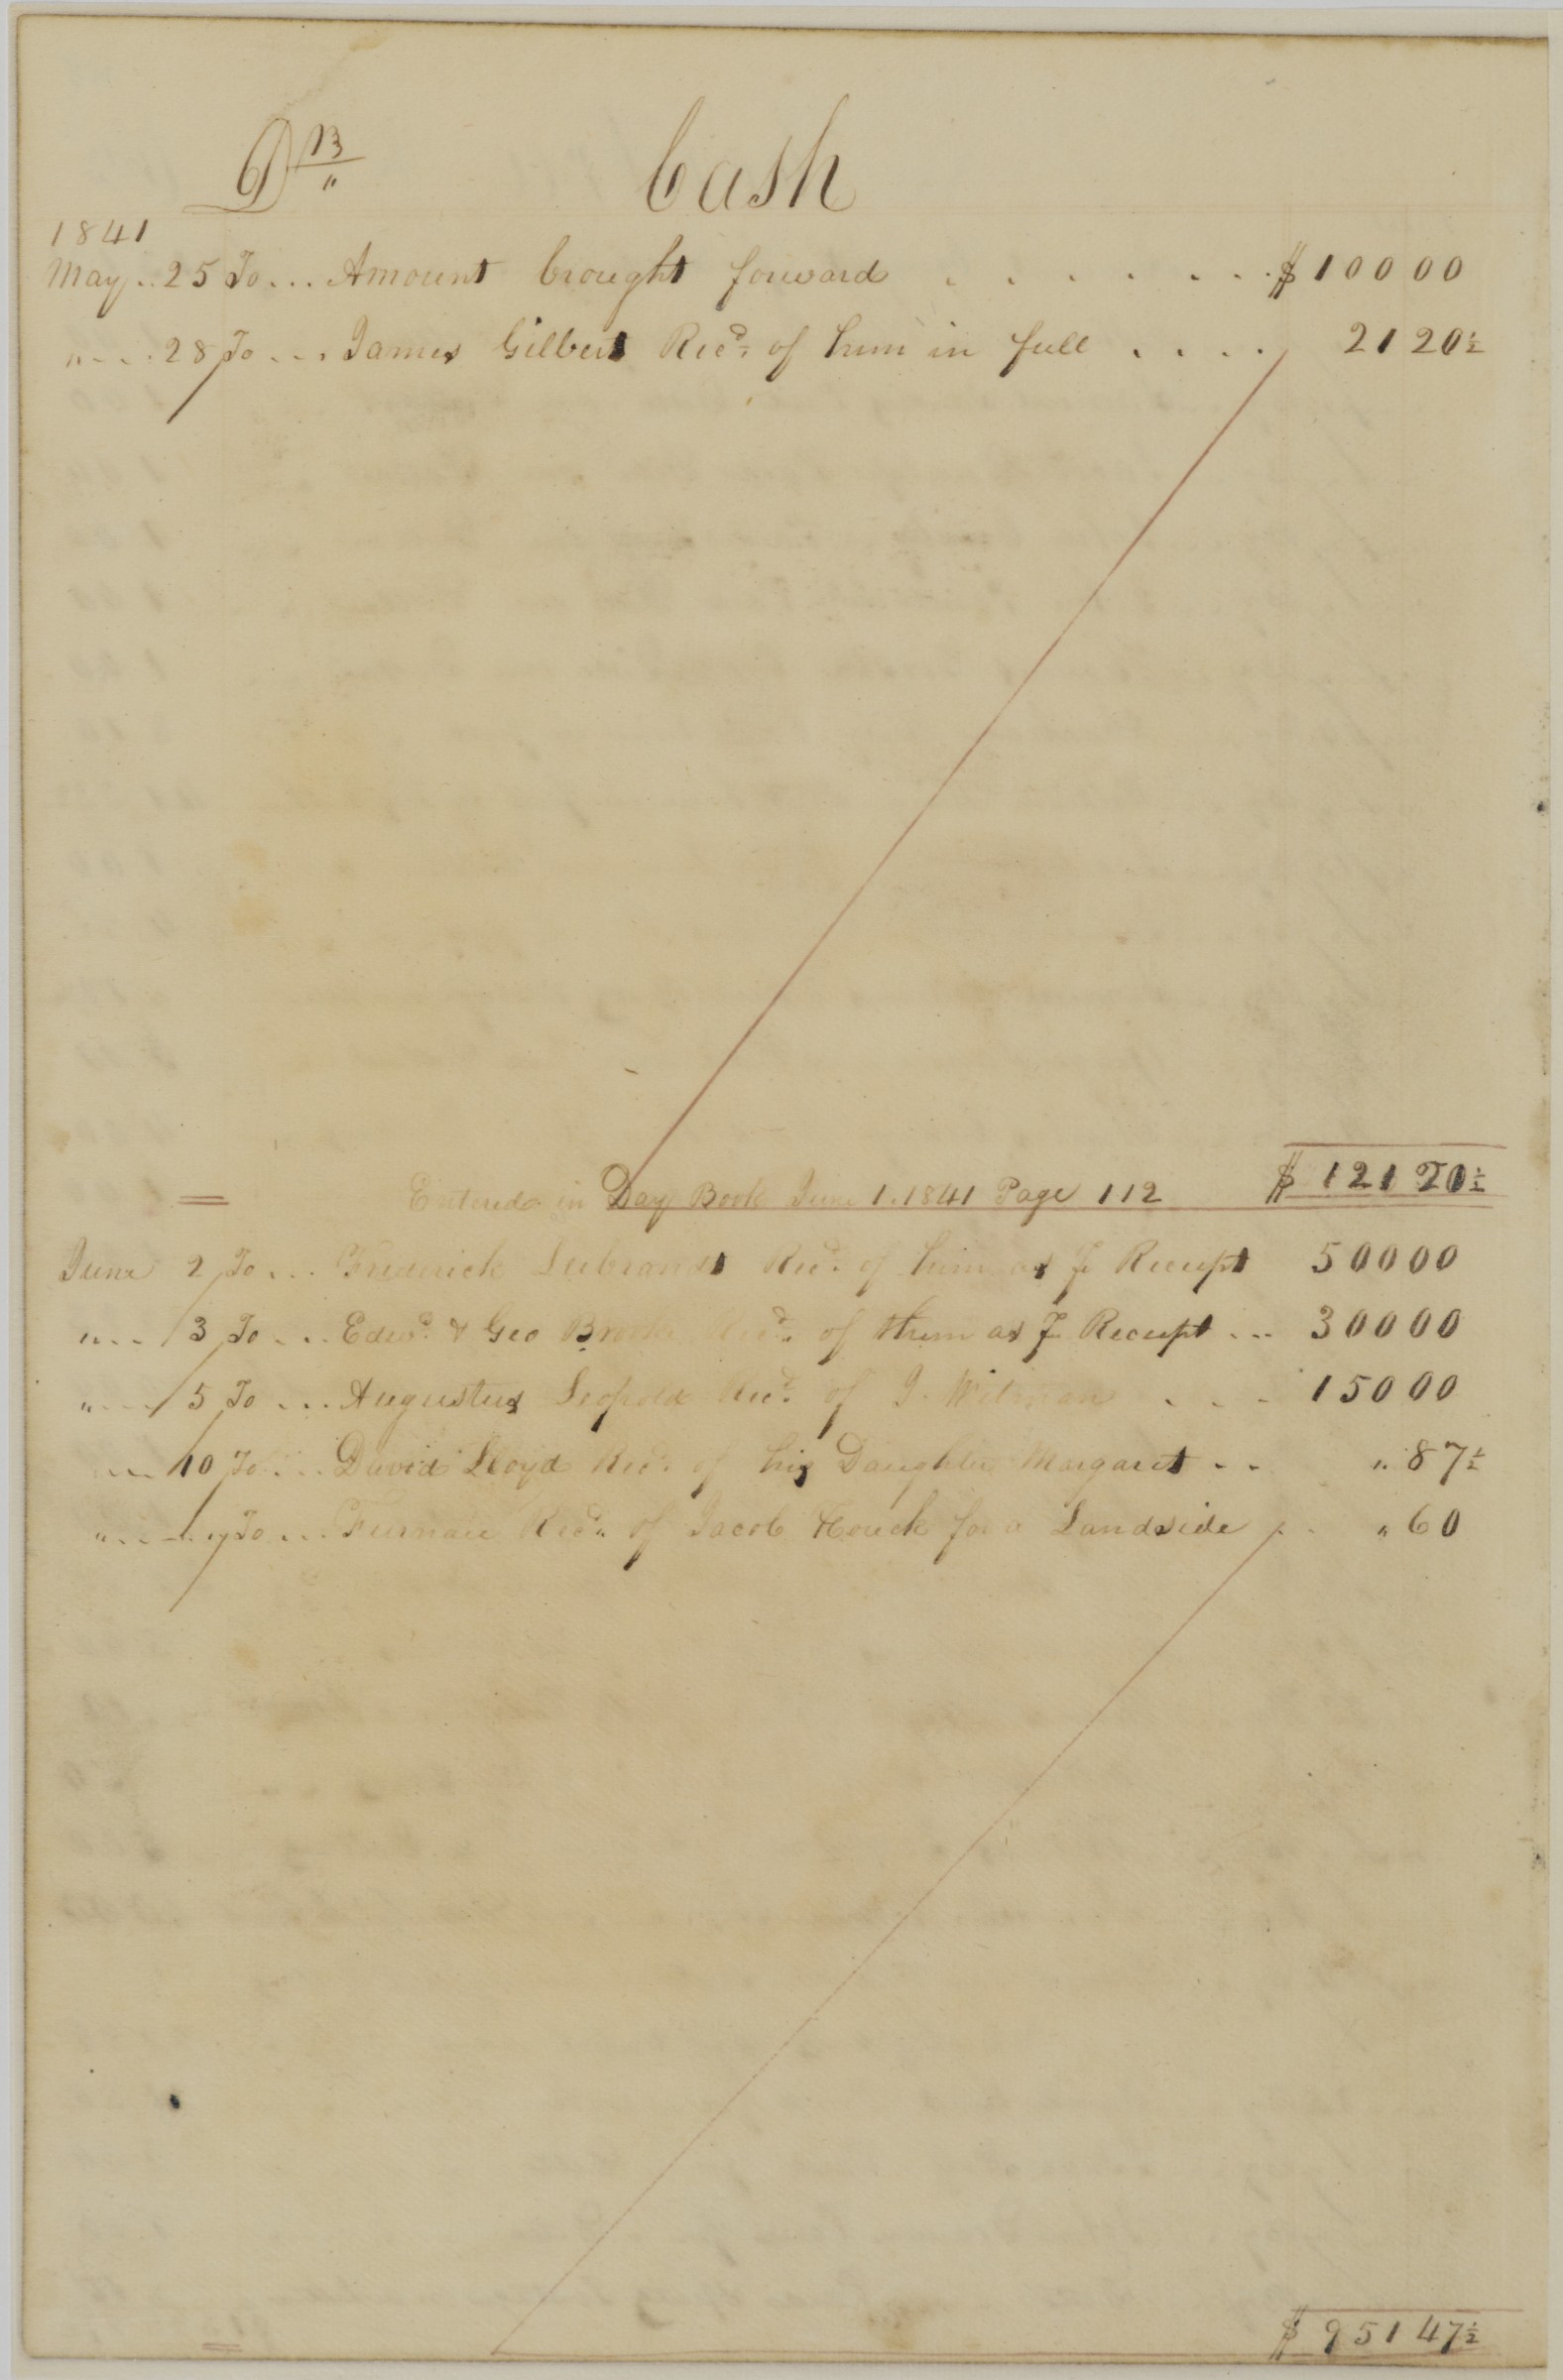 Dr Cash
1841
May .. 25 To ... Amount brought forward . . . . . . . $ 100 00
" - - . 28 To ... James Gilbert Recd. of him in full . . . . 21 20½
Entered in Day Book June 1. 1841 Page 112 $ 121 20½
June 2 To ... Frederick Leibrandt Recd. of him as pr Receipt 500 00
" - - 3 To ... Edwd. & Geo Brooke Recd. of them as pr Receipt ... 300 00
" - - 5 To ... Augustus Leopold Recd. of J. Witman . . . 150 00
" - - 10 To ... David Lloyd Recd. of his Daughter Margaret - - " 87½
" - - - " To ... Furnace Recd. of Jacob Houck for a Landside . . " 60
$ 951 47½